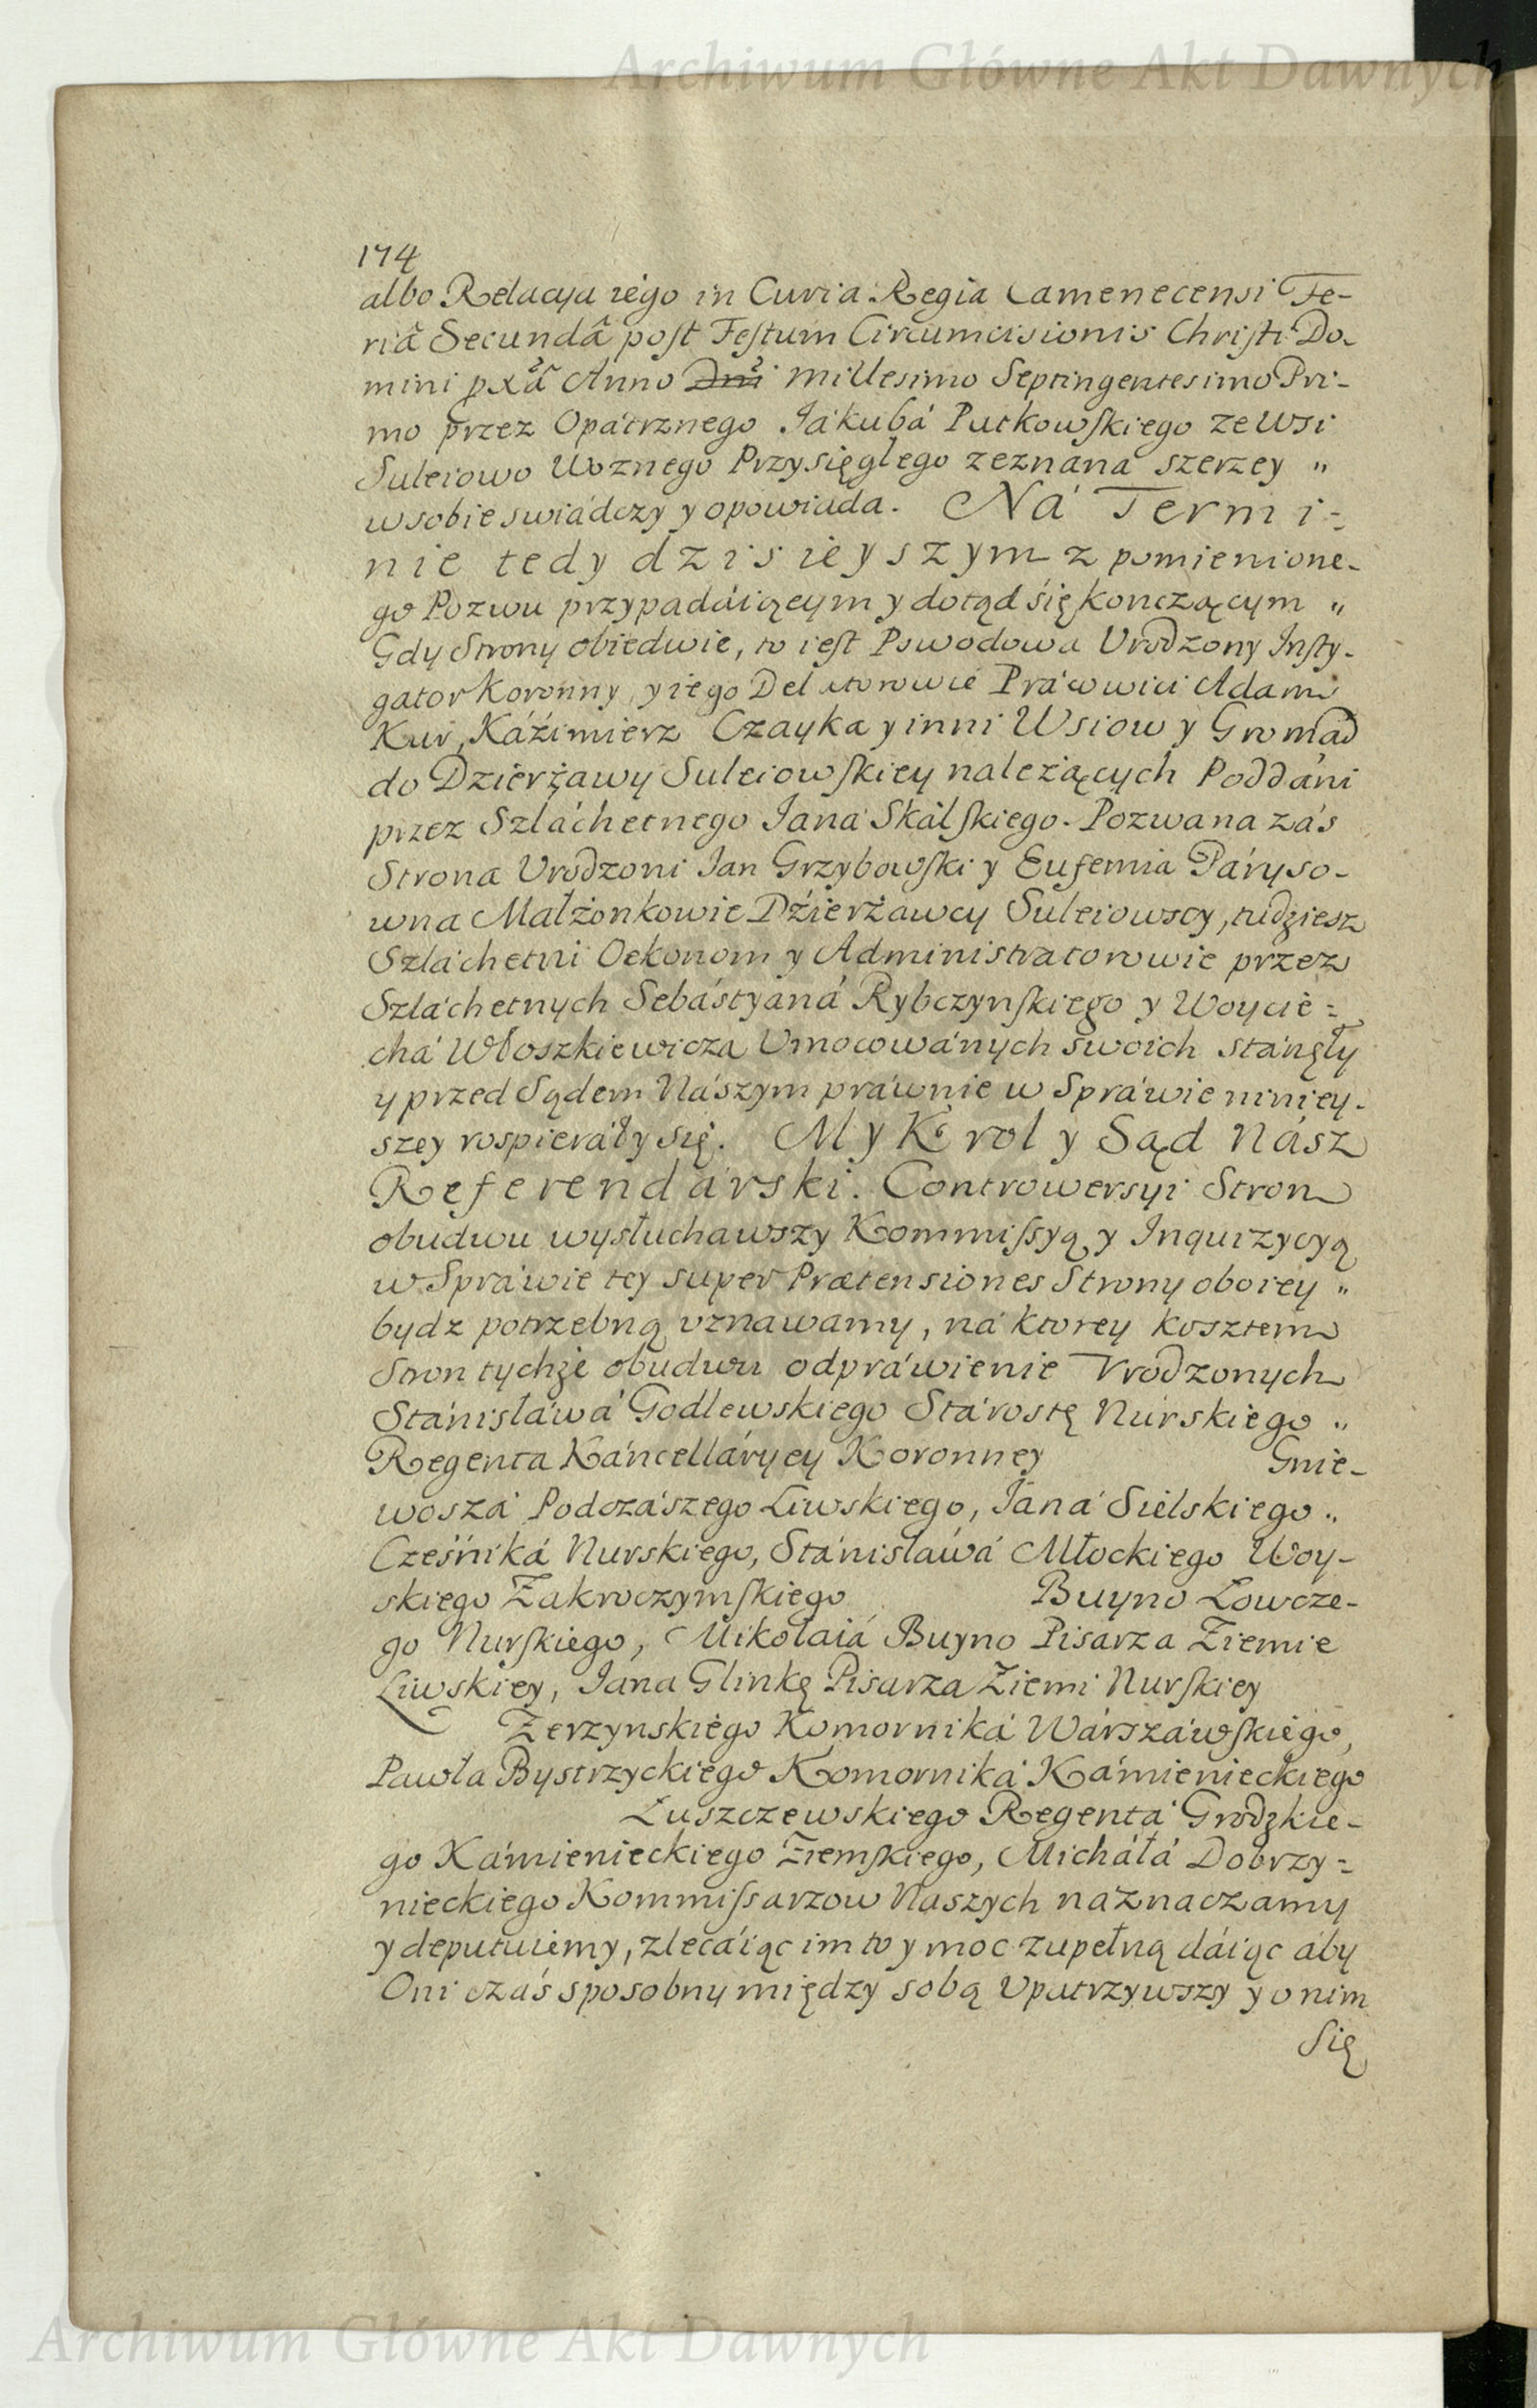 Archiwum Główne Akt Dawnych
174
albo Relacya iego in Curia Regia Camenecensi Fe-
riâ Secundâ post Festum Circumcisionis Christi Do-
mini pxâ Anno Dni Millesimo Septingentesimo Pri-
mo przez Opátrznego Jákubá Putkowskiego ze Wsi
Suleiowo Woznego Przysięglego zeznána szerzey "
w sobie swiádczy y opowiada. Ná Termi=
nie tedy dzisieyszym z pomienione-
go Pozwu przypadáiącym y dotąd się konczącym "
Gdy Strony obiedwie, to iest Powodowa Urodzony Insty-
gator Koronny, y iego Delatorowie Prácowici Adam
Kur, Káźimierz Czayka y inni Wsiow y Gromad
do Dzierżawy Suleiowskiey należących Poddáni
przez Szláchetnego Jana Skálskiego. Pozwana zás
Strona Vrodzoni Jan Grzybowski y Eufemia Páryso-
wna Małżonkowie Dźierżawcy Suleiowscy, tudziesz
Szláchetni Oekonom y Administratorowie przez
Szláchetnych Sebástyáná Rybczynskiego y Woycie=
chá Włoszkiewicza Vmocowánych swoich stánęły
y przed Sądem Nászym práwnie w Spráwie niniey-
szey rospieráły się. My Krol y Sąd Nász
Referendárski. Controwersyi Stron
obudwu wysłuchawszy Kommissyą y Inquizycyą
w Spráwie tey super Prætensiones Strony oboiey "
bydz potrzebną vznawamy, ná ktorey kosztem
Stron tychże obudwu odpráwienie Vrodzonych
Stánisłáwá Godlewskiego Stárostę Nurskiego "
Regenta Káncelláryey Koronney Gnie-
woszá Podczászego Liwskiego, Jáná Sielskiego "
Cześniká Nurskiego, Stánisłáwá Młockiego Woy-
skiego Zakroczymskiego Buyno Łowcze-
go Nurskiego, Mikołaiá Buyno Pisarza Ziemie
Liwskiey, Jana Glinkę Pisarza Ziemi Nurskiey
Zerzynskiego Komorniká Wárszáwskiego,
Pawła Bystrzyckiego Komorniká Kámienieckiego
Łuszczewskiego Regentá Grodzkie-
go Kámienieckiego Ziemskiego, Micháłá Dobrzy=
nieckiego Kommissarzow Naszych náznaczamy
y deputuiemy, zlecáiąc im to y moc zupełną dáiąc áby
Oni czás sposobny między sobą Vpatrzywszy y o nim
Się
Archiwum Główne Akt Dawnych